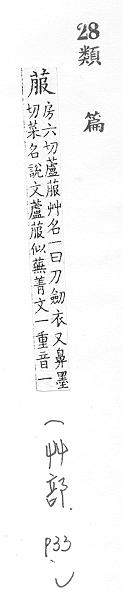 28
類篇
菔
房六切蘆菔艸名一曰刀劒衣又鼻墨
切菜名說文蘆菔似蕪菁文一重音一
(艸部.P33.)